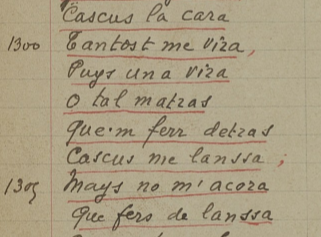 Cascus la cara
1300 Tantost me vira,
Puys una vira
O tal matras
Que·m ferr detras
Cascus me lanssa ;
1305 Mays no m'acora
Que fers de lanssa